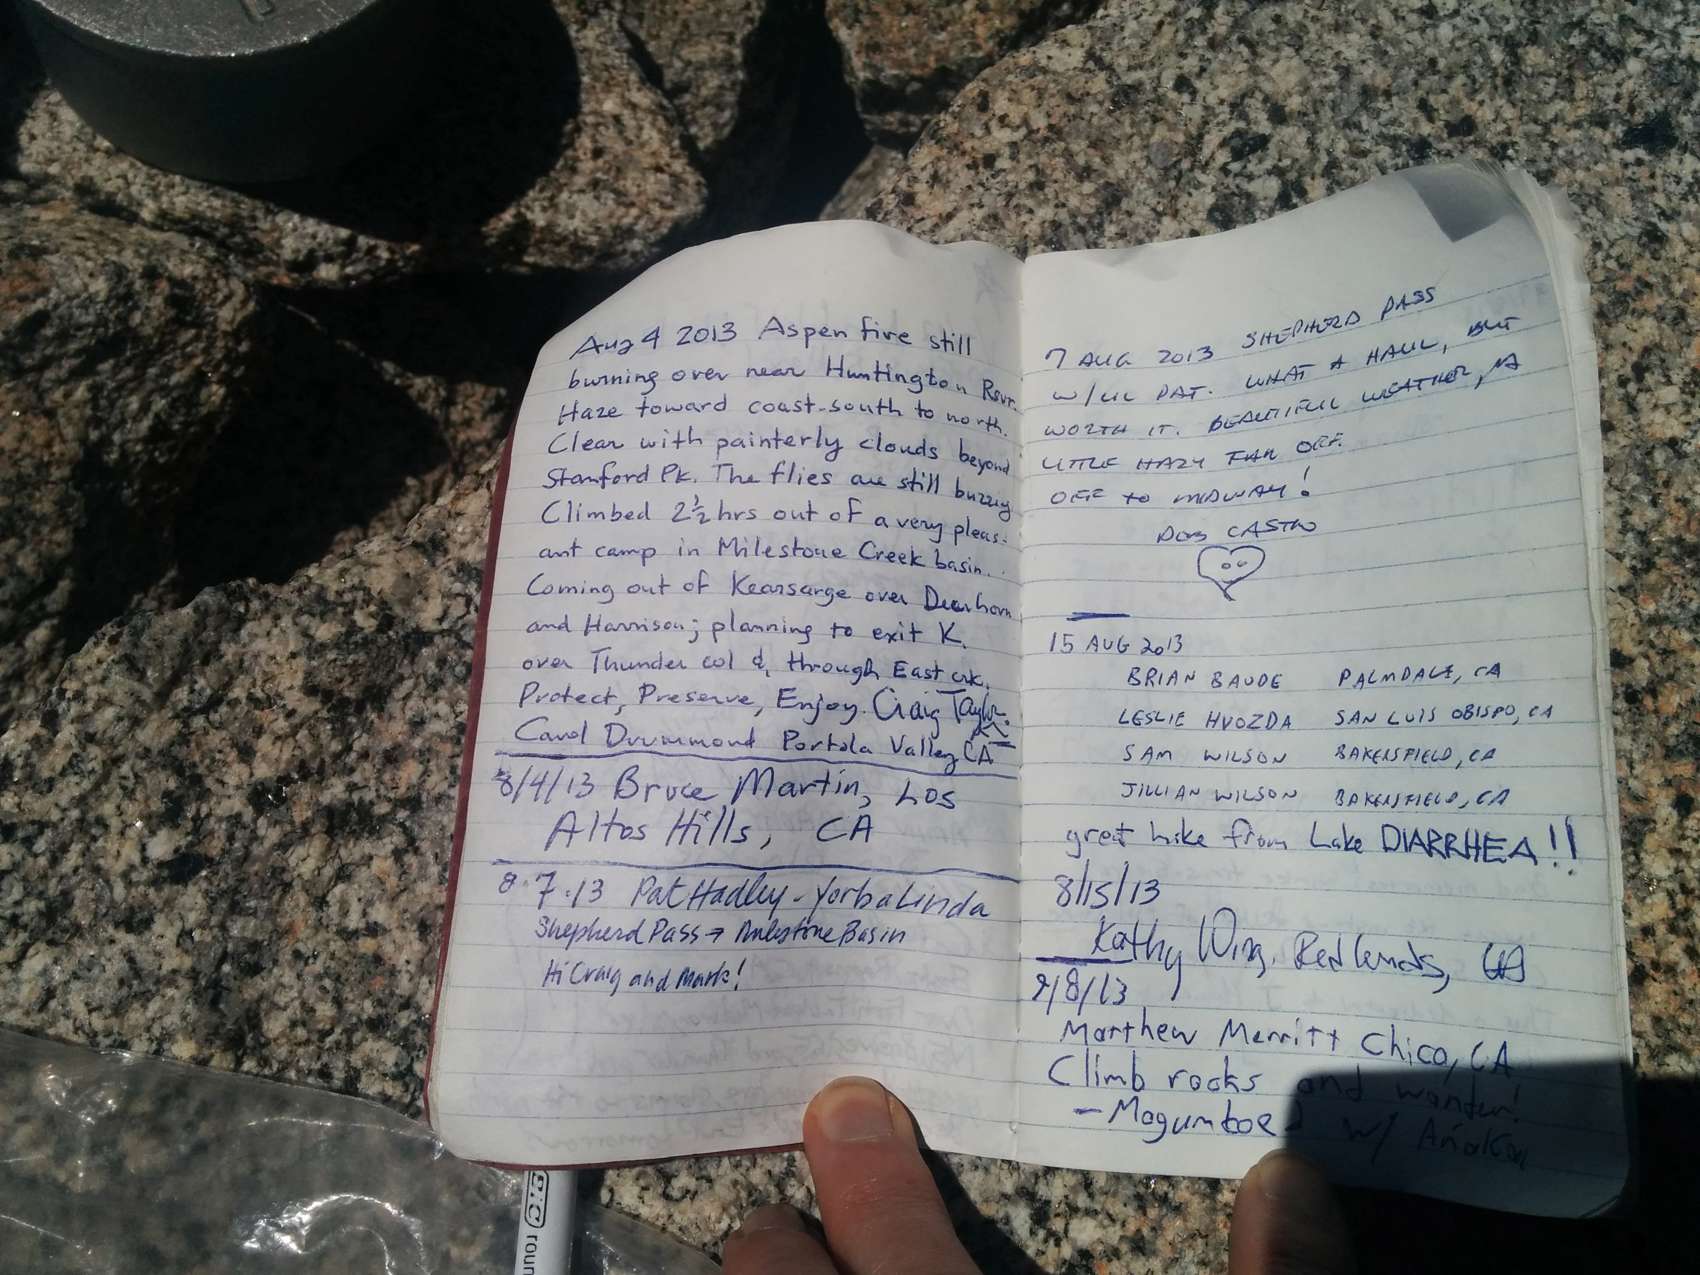 Aug 4 2013 Aspen fire still
burning over near Huntington Rsvr.
Haze toward coast-south to north.
Clear with painterly clouds beyond
Stanford Pk. The flies are still buzzing
Climbed 2½ hrs out of a very pleas-
ant camp in Milestone Creek basin.
Coming out of Kearsarge over Deerhorn
and Harrison; planning to exit K.
over Thunder col & through East crk.
Protect, Preserve, Enjoy. Craig Taylor.
Carol Drummond Portola Valley CA
8/4/13 Bruce Martin, Los
Altos Hills, CA
8.7.13 Pat Hadley - Yorba Linda
Shepherd Pass → Milestone Basin
Hi Craig and Mark!
7 AUG 2013 SHEPHERD PASS
W/ LIL PAT. WHAT A HAUL, BUT
WORTH IT. BEAUTIFUL WEATHER, A
LITTLE HAZY FAR OFF.
OFF TO MIDWAY!
CASTRO
15 AUG 2013
BRIAN BAUDE PALMDALE, CA
LESLIE HVOZDA SAN LUIS OBISPO, CA
SAM WILSON BAKERSFIELD, CA
JILLIAN WILSON BAKERSFIELD, CA
great hike from Lake DIARRHEA!!
8/15/13
Kathy Wing, Redlands, CA
9/8/13
Matthew Merritt Chico, CA
Climb rocks and wander!
- Mogumboe w/
BiC
roun